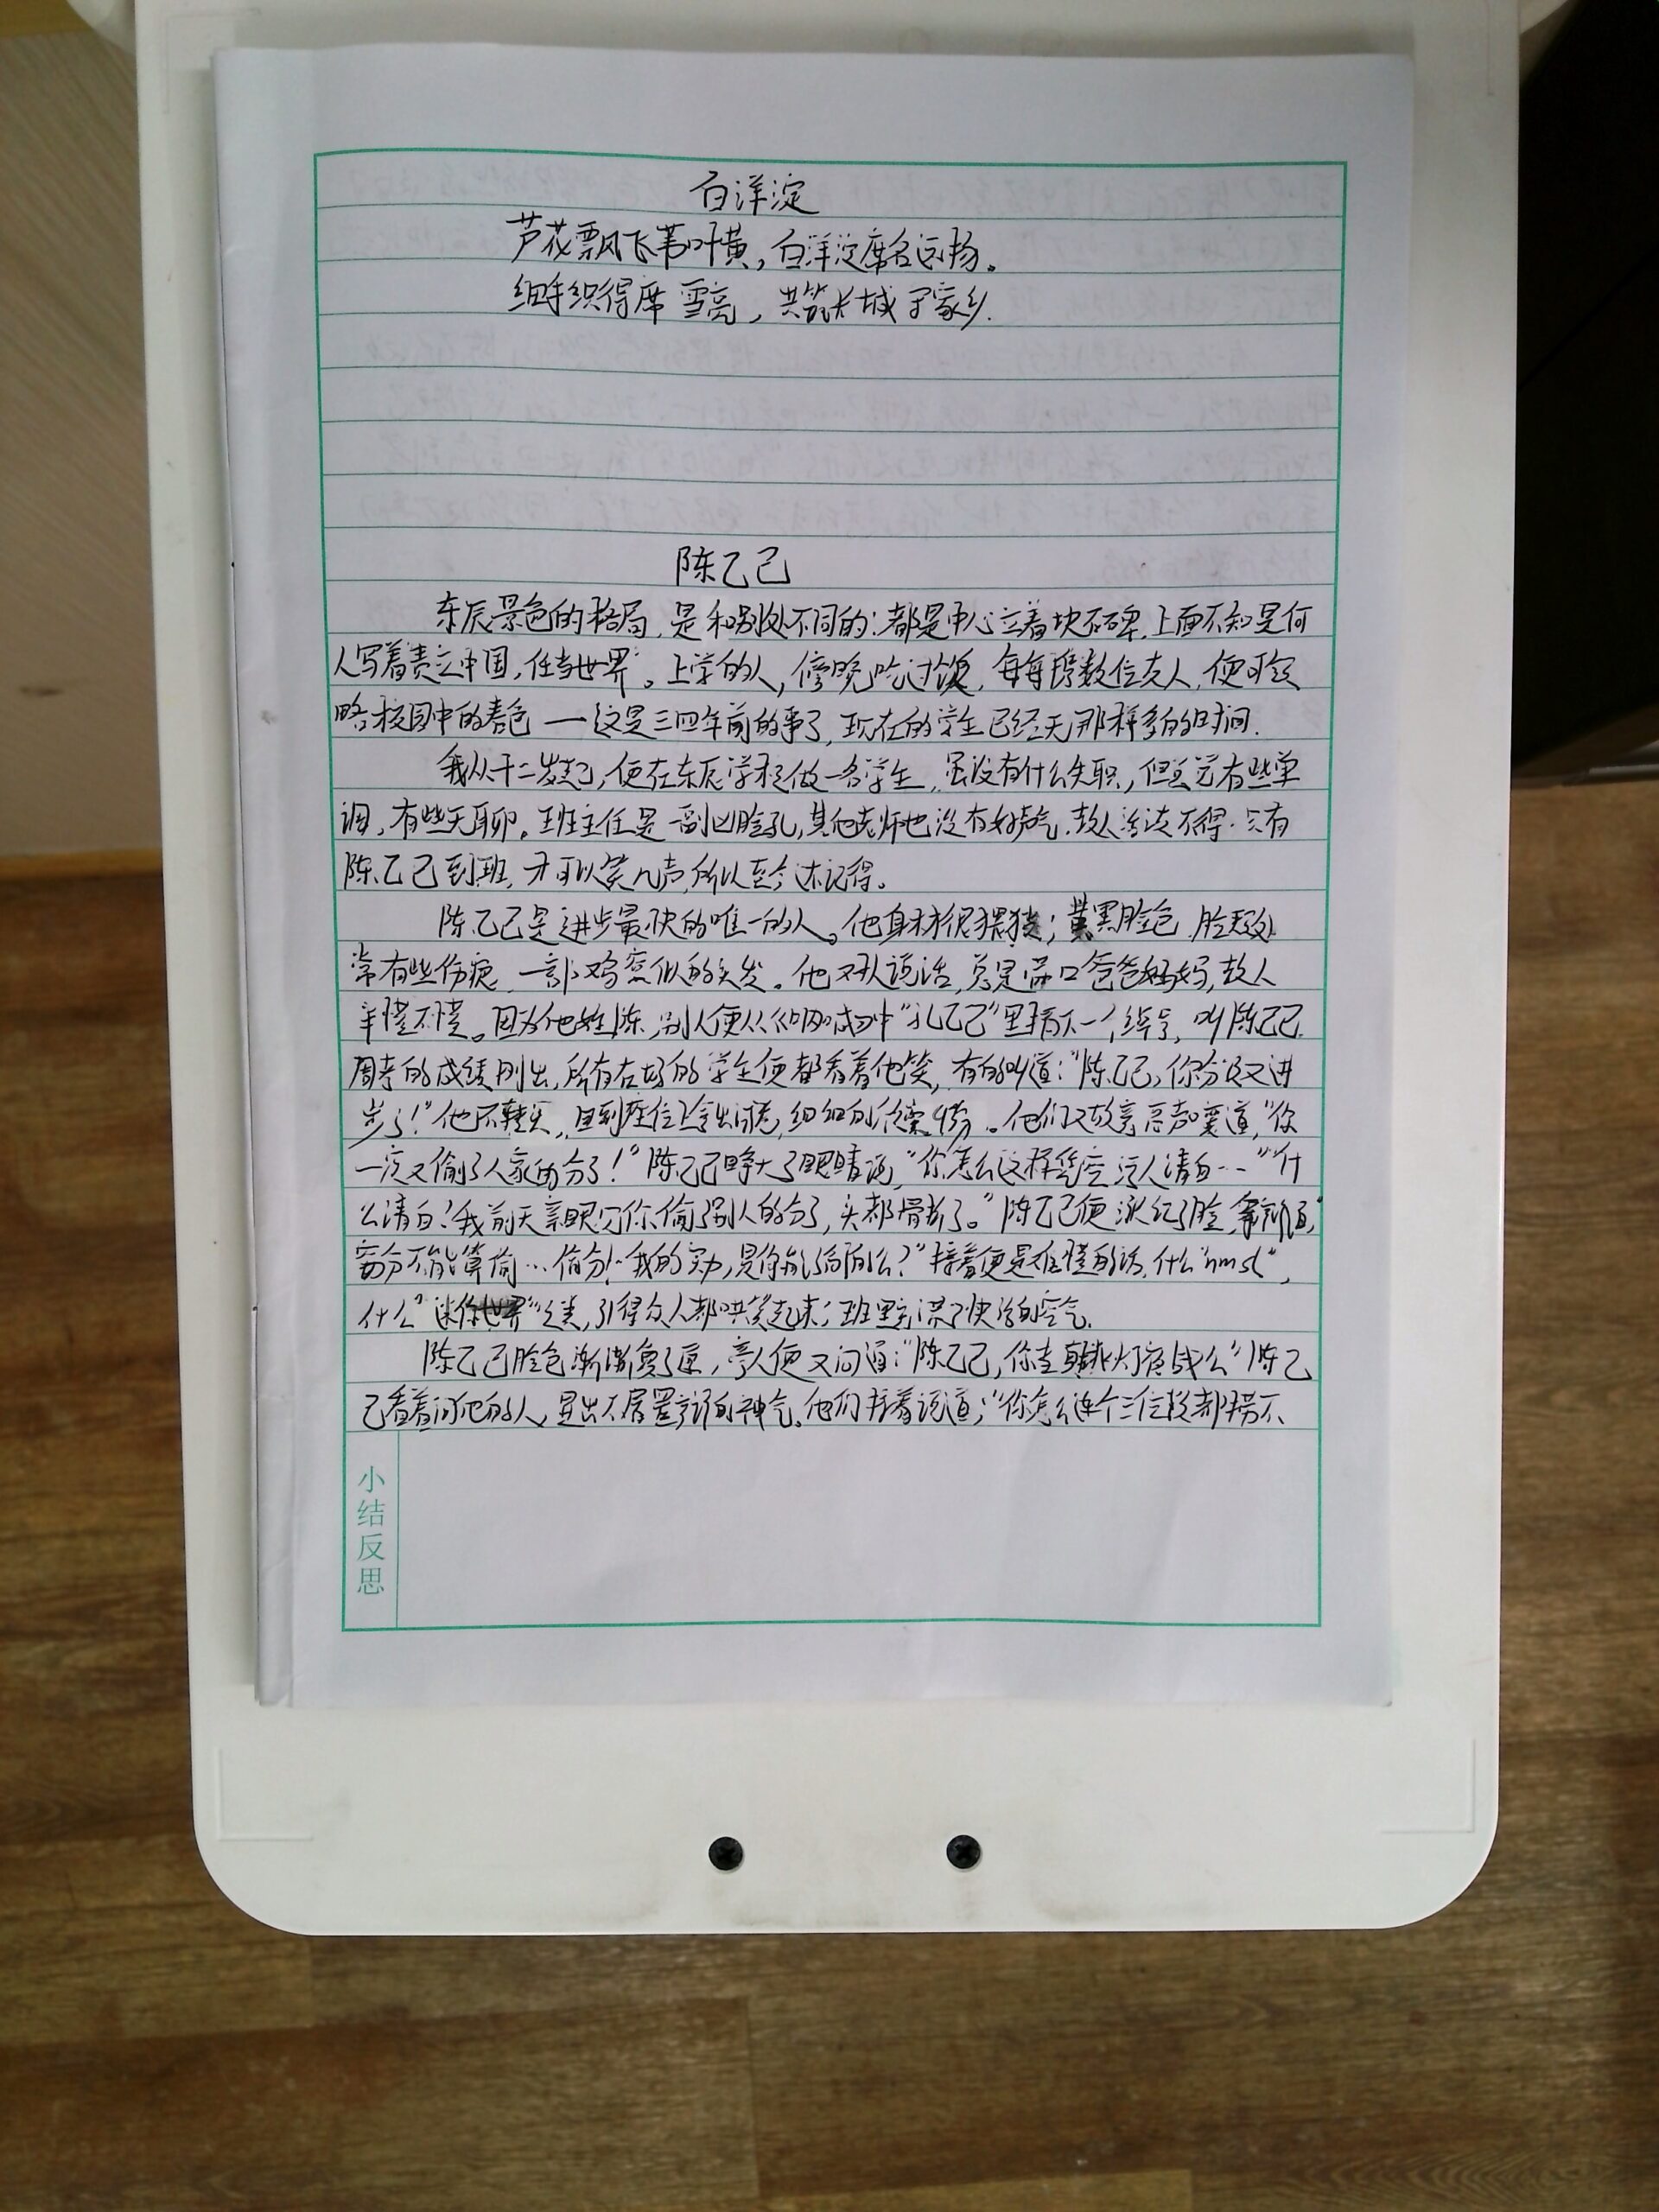 白洋淀
芦花飘飞苇叶黄，白洋淀席名远扬。
细手织得席雪亮，共筑长城守家乡.
陈乙己
东辰景色的格局，是和别处不同的：都是中心立着块石碑，上面不知是何
人写着责立中国，任当世界”。上学的人，傍晚吃过饭，每每携数位友人，便可领
略校园中的春色——这是三四年前的事了，现在的学生已经无那样多的时间.
我从十二岁起，便在东辰学校做一名学生，虽没有什么失职，但总觉有些单
调，有些无聊。班主任是一副凶脸孔，其他老师也没有好声气，教人活泼不得.只有
陈乙己到班，才可以笑几声，所以至今还记得。
陈乙己是进步最快的唯一的人。他身材很猥琐；黄黑脸色，脸
常有些伤疤，一部鸡窝似的头发。他对人说话，总是满口爸爸妈妈，教人
半懂不懂。因为他姓陈，别人便从 中“孔乙己”里 下一个绰号，叫陈乙己.
周考的成绩刚出，所有在场的学生便都看着他笑，有的叫道：“陈乙己，你分 又进
步了！”他不 ，回到座位上拿出 ，细细的 。他们又故意高声嚷道，“你
一定又偷了人家的分了！”陈乙己睁大了眼睛说，“你怎么这样凭空污人清白…”“什
么清白？我前天亲眼见你偷了别人的分了，头都 了。”陈乙己便涨红了脸，争辩道，“
窃分不能算偷…偷分！…我的实力，是你能 的么？”接着便是难懂的话，什么“nmsl”，
什么“迷你世界”之类，引得众人都哄笑起来；班里充满了快活的空气.
陈乙己脸色渐渐复了原，旁人便又问道：“陈乙己，你当真挑灯夜战么”陈乙
己看着问他的人，显出不屑置辩的神气。他们接着说道：“你怎么连个三位数都捞不
小结反思